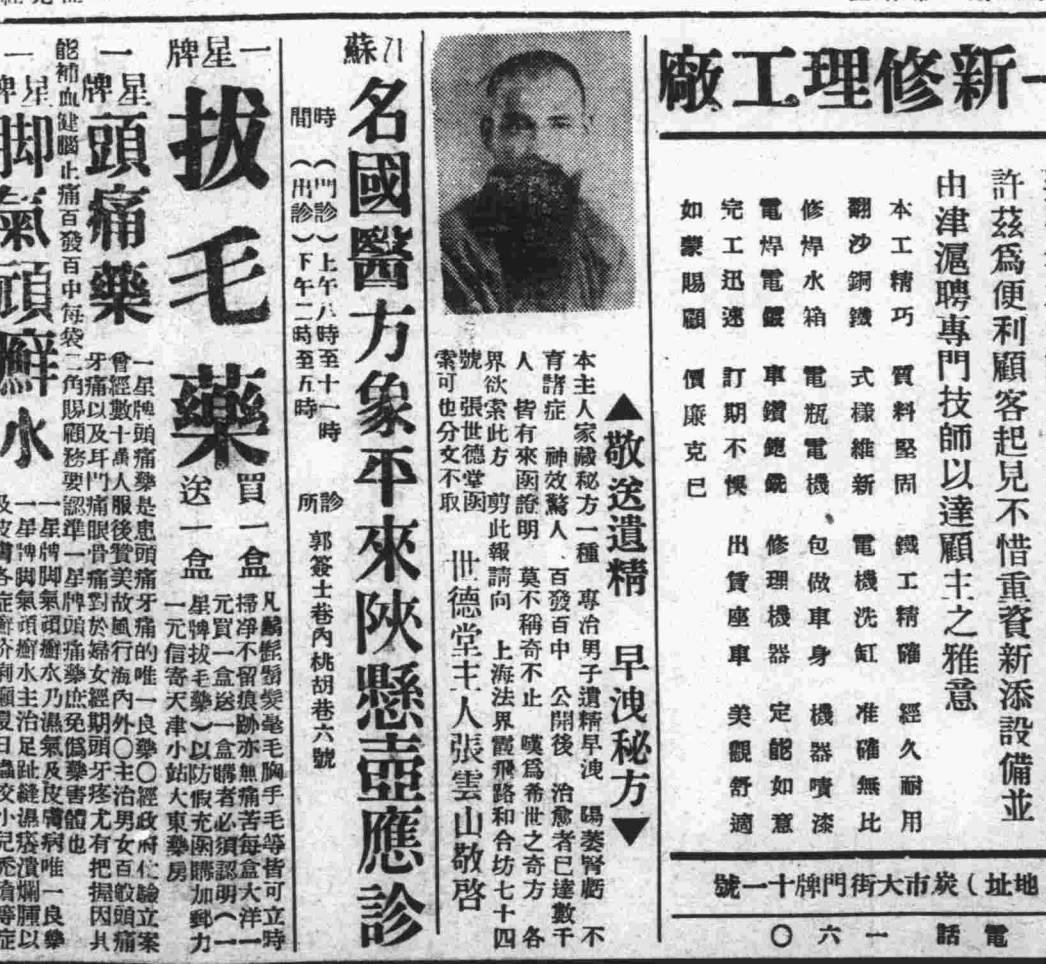 一新修理工廠
許茲爲便利顧客起見不惜重資新添設備並
由津滬聘專門技師以達顧主之雅意
本工精巧 質料堅固 鐵工精確 經久耐用
翻沙銅鐵 式樣維新 電機洗缸 准確無比
修焊水箱 電瓶電機 包做車身 機器噴漆
電焊電鍍 車鑽鉋銑 修理機器 定能如意
完工迅速 訂期不悞 出賃座車 美觀舒適
如蒙賜顧 價廉克己
地址)炭市大街門牌十一號
電話 一六〇
▲敬送遺精 早洩秘方▼
本主人家藏秘方一種 專治男子遺精早洩 陽萎腎虧 不
育諸症 神效驚人 百發百中 公開後 治愈者已達數千
人 皆有來函證明 莫不稱奇不止 嘆爲希世之奇方 各
界欲索此方 剪此報請向 上海法界霞飛路和合坊七十四
號 張世德堂函
索可也分文不取
世德堂主人張雲山敬啓
蘇州
名國醫方象平來陝懸壺應診
時間
(門診)上午八時至十一時
(出診)下午二時至五時
診所
郭簽士巷內桃胡巷六號
一星牌
拔毛藥
買一盒
送一盒
凡髭鬍髮毫毛胸手毛等皆可立時
掃净不留痕跡亦無痛苦每盒大洋一
元買一盒送一盒購者必須認明(一
星牌拔毛藥)以防假充函購加郵力
一元信寄天津小站大東藥房
一星牌
頭痛藥
一星牌頭痛藥是患頭痛牙痛的唯一良藥〇經政府化驗立案
曾經數十萬人服後賞美故風行海內外〇主治男女百般頭痛
牙痛以及耳門痛眼骨痛對於婦女經期頭牙疼尤有把握因具
能補血健腦止痛百發百中每袋二角賜顧務要認準一星牌頭痛藥庶免僞藥害體也
一星牌
脚氣頑癬水
一星牌脚氣頑癬水乃濕氣及皮膚病唯一良藥
一星牌脚氣頑癬水主治足趾縫濕痰潰爛腫以